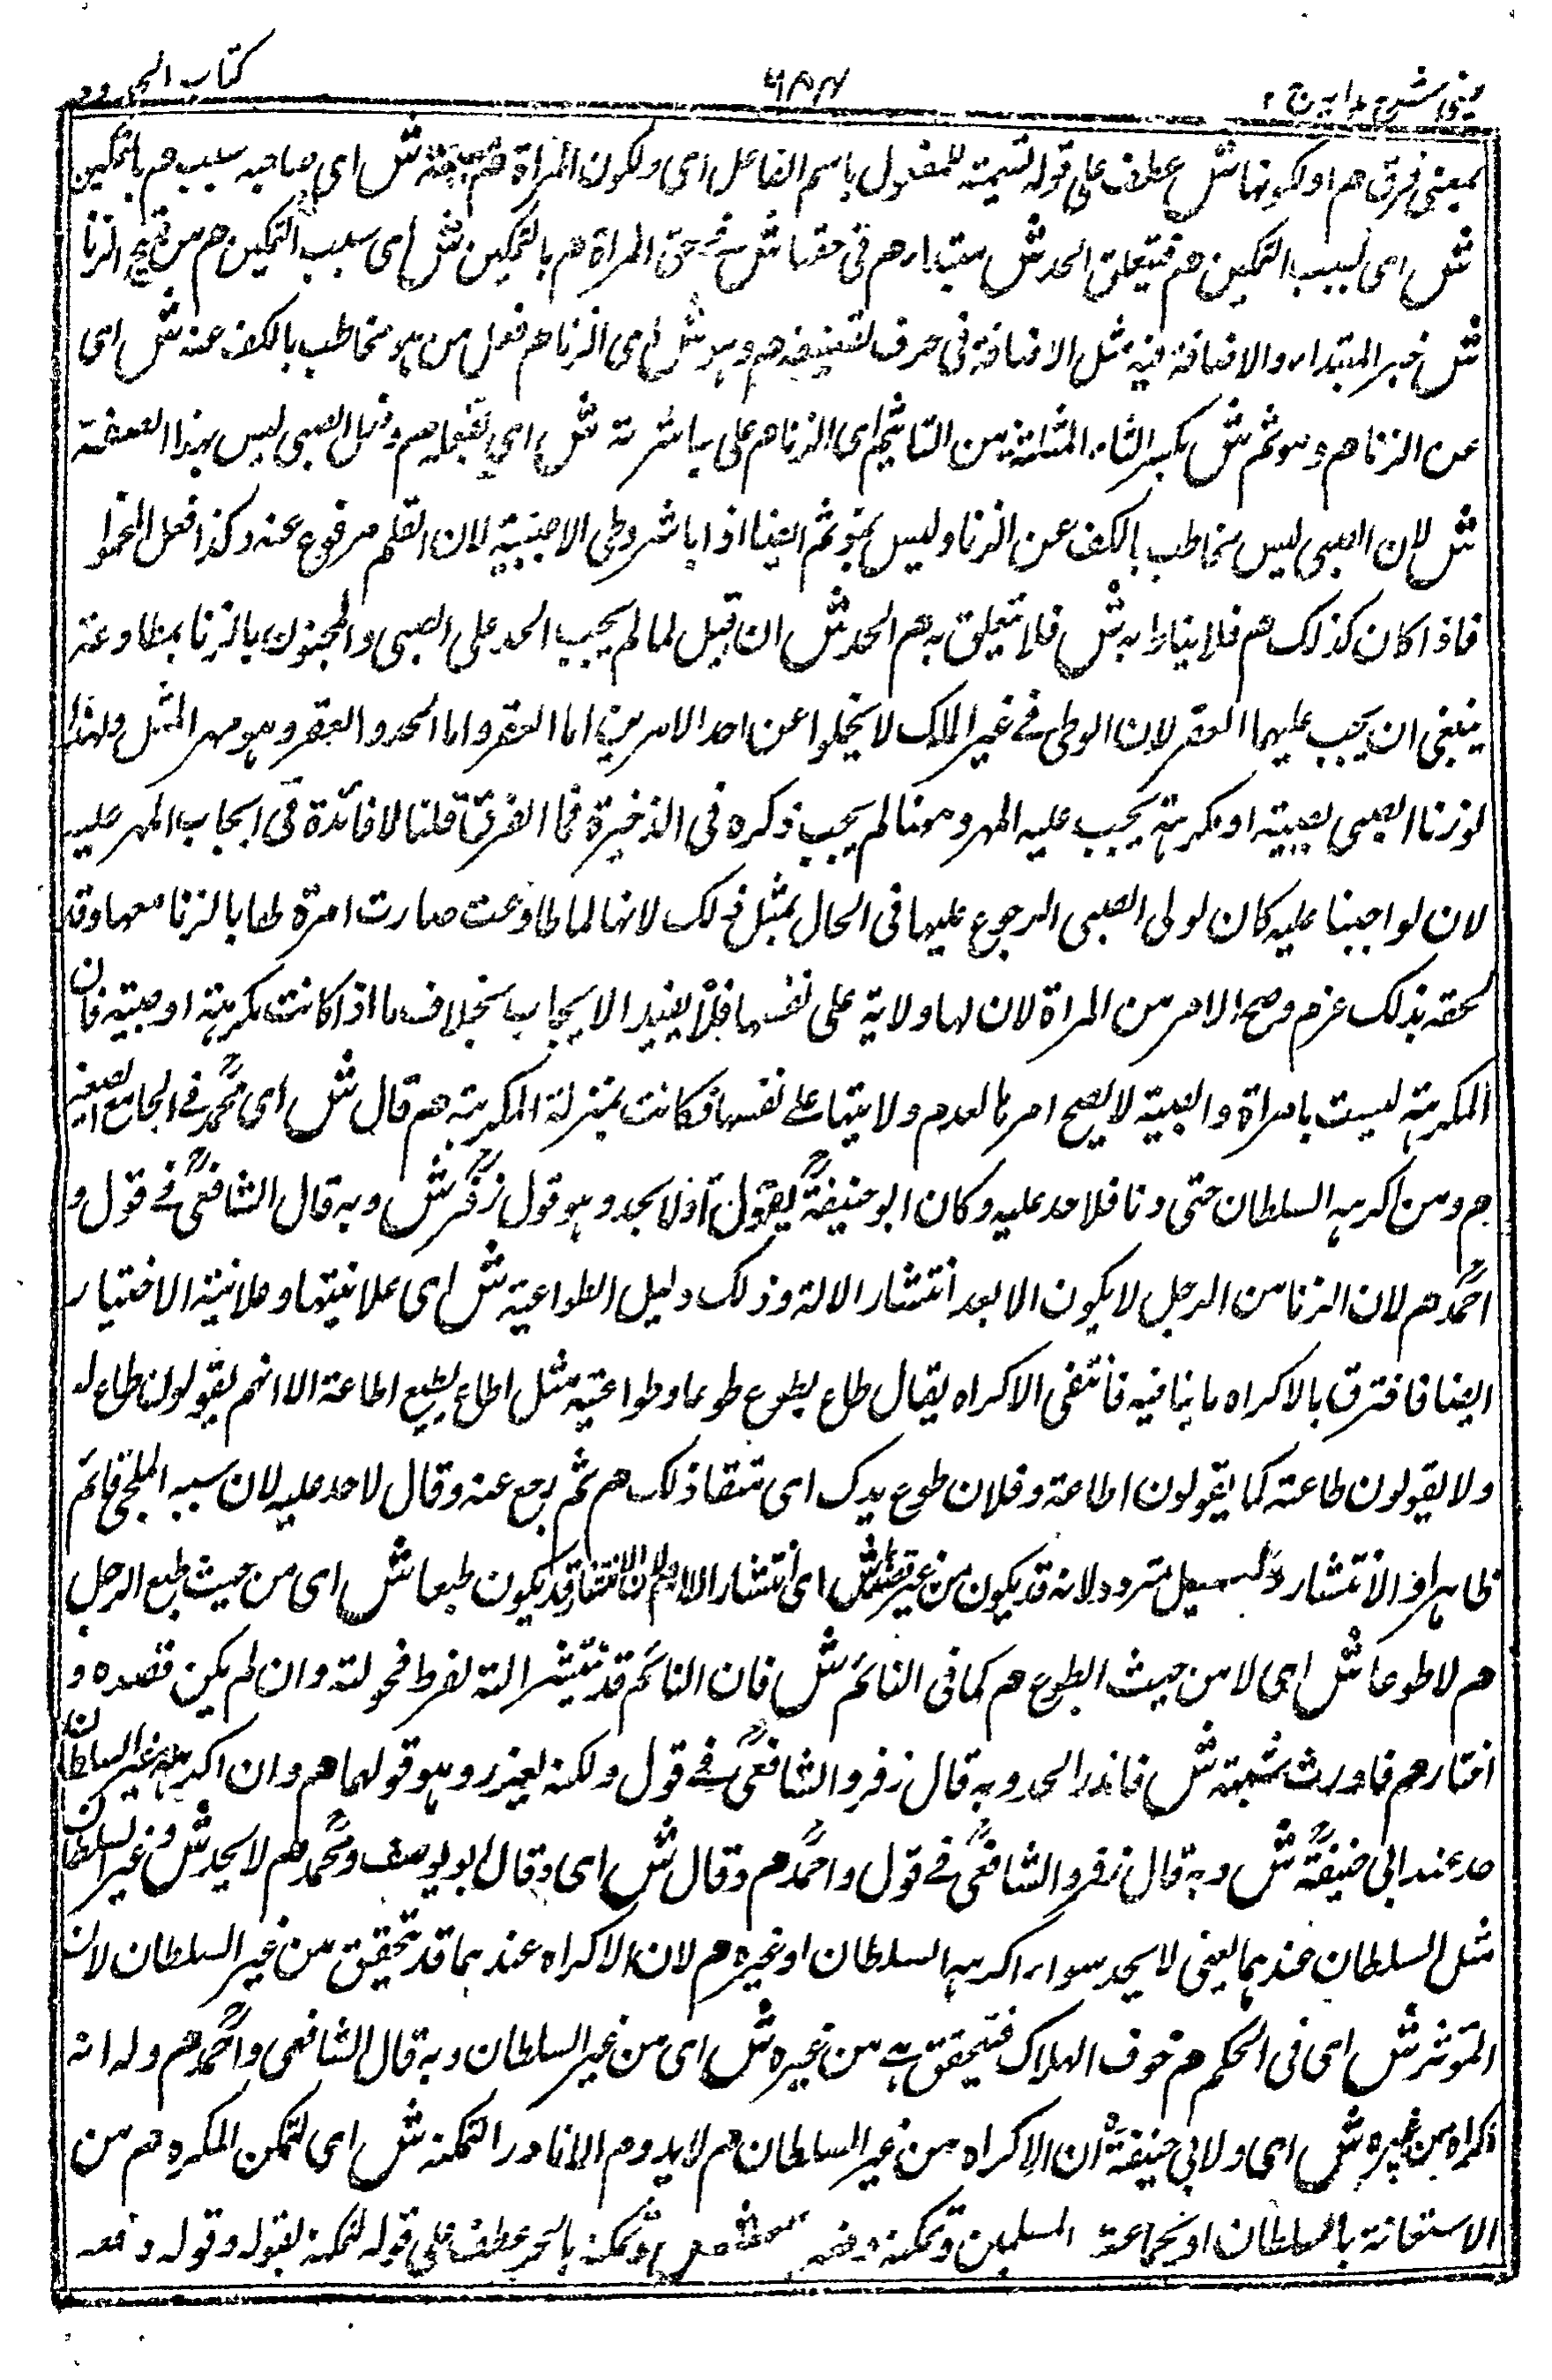 عینی شرح ہدایہ ج ۲
۶۸۴
کتاب الحدود
بمعنی فرق هم او لکونہا ش عطف علی قوله تسمیۃ للمفعول باسم الفاعل ای ولکون المراۃ هم ش ای صاحبه سبب هم بالتمکین
ش ای بسبب التمکین هم فتعلق الحد ش مبتدا هم فی حقہا ش فے حق المراۃ هم بالتمکین ش ای سبب التمکین هم من قبیح الزنا
ش خبر المبتداء والاضافۃ فیه مثل الاضافۃ فی حرف لتضیفه هم وہو ش ای الزنا هم فعل من ہو مخاطب بالکف عنه ش ای
عن الزنا هم وموثم ش بکسر الثاء المثلثۃ من التاثیم ای الزنا هم علی مباشرته ش ای بفعله هم وفعل الصبی لیس بہذا الصفۃ
ش لان الصبی لیس مخاطب بالکف عن الزنا ولیس بموثم ایضا اذا باشر وطی الاجنبیۃ لان القلم مرفوع عنه وکذا فعل المجنون
فاذا کان کذلک هم فلا یناط به ش فلا یتعلق به هم الحد ش ان قیل لما لم یجب الحد علی الصبی والمجنون بالزنا بمطاوعۃ
ینبغی ان یجب علیہما العقر لان الوطی فے غیر الملک لا یخلوا عن احد الامرین اما العقر واما الحد والعقر وہو مہر المثل ولہذا
لو زنا الصبی بصبیۃ او مکرہۃ یجب علیه المہر وہہنا لم یجب ذکره فی الذخیرۃ فما الفرق قلنا لا فائدۃ فی ایجاب المہر علیه
لان لو اجبنا علیه کان لولی الصبی الرجوع علیہا فی الحال بمثل ذلک لانہا لما طاوعت صارت امرۃ لہا بالزنا معہا وقد
لحقه بذلک غرم وصح الامر من المراۃ لان لہا ولایۃ علی نفسہا فلا یفید الایجاب بخلاف ما اذا کانت مکرہۃ او صبیۃ فان
المکرہۃ لیست بامراۃ والصبیۃ لا یصح امرہا لعدم ولایتہا علے نفسہا فکانت بمنزلۃ المکرہۃ هم قال ش ای محمدؒ فے الجامع الصغیر
هم ومن اکرہه السلطان حتی زنا فلا حد علیه وکان ابو حنیفۃؒ یقول اولا یحد وہو قول زفرؒ ش وبه قال الشافعیؒ فے قول و
احمدؒ هم لان الزنا من الرجل لا یکون الا بعد انتشار الالۃ وذلک دلیل الطواعیۃ ش ای علانیتہا وعلانیۃ الاختیار
ایضا فاقترق بالاکراه ما ینافیه فانتفی الاکراه یقال طاع یطوع طوعا وطواعیۃ مثل اطاع یطیع اطاعۃ الا انہم یقولون طاع له
ولا یقولون طاعته کما یقولون اطاعۃ وفلان طوع یدک ای منقاذ لک هم ثم رجع عنه وقال لا حد علیه لان سببه الملجی قائم
ظاہرا والانتشار دلیل متردد لانه قد یکون من غیر قصد ش ای انتشار الالۃ هم لان الانتشار قد یکون طبعا ش ای من حیث طبع الرجل
هم لا طوعا ش ای لا من حیث الطوع هم کما فی النائم ش فان النائم قد ینتشر الته لفرط فحولته وان لم یکن قصده و
اختار هم فاورث شبہۃ ش فاندر الحد وبه قال زفر والشافعیؒ فے قول ولکنه لیعزر وہو قولہما هم وان اکرہه غیر السلطان
حد عند ابی حنیفۃؒ ش وبه قال زفر والشافعیؒ فے قول واحمدؒ هم وقال ش ای وقال ابو یوسف ومحمدؒ هم لا یحد ش وغیر السلطان
مثل السلطان عندہما یعنی لا یحد سواء اکرہه السلطان او غیره هم لان الاکراه عندہما قد یتحقق من غیر السلطان لان
المؤثر ش ای فی الحکم هم خوف الہلاک فیتحقق ہے من غیره ش ای من غیر السلطان وبه قال الشافعی واحمدؒ هم وله انه
اکراه من غیره ش ای ولابی حنیفۃؒ ان الاکراه من غیر السلطان هم لا یدوم الا نادر التمکنه ش ای لتمکن المکره هم من
الاستعانۃ بالسلطان او بجماعۃ المسلمین وتمکنه دفعه ش وتمکنه بالجر عطف علی قوله لتمکنه لقوله وقوله دفعه